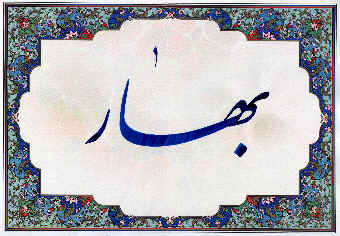 بهار